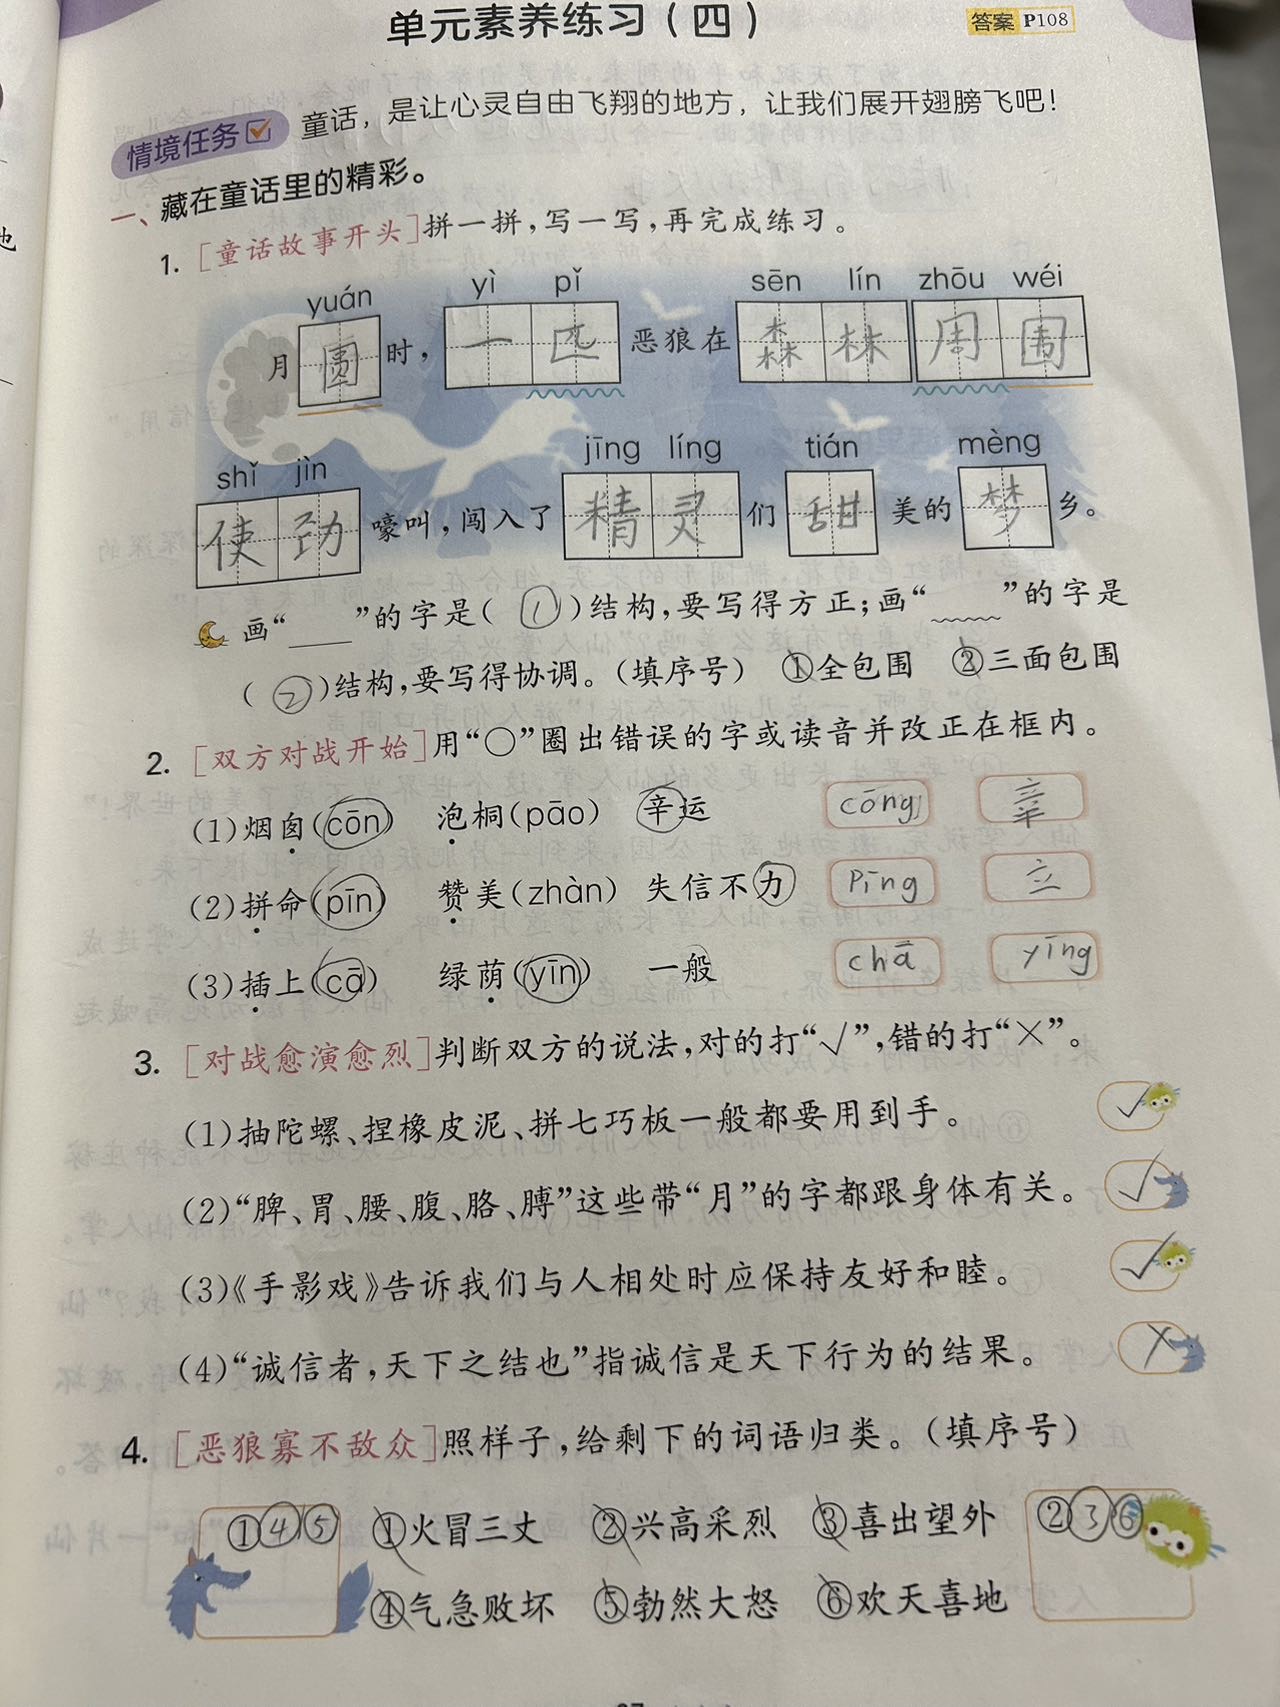 单元素养练习（四）
答案 P108
情境任务 童话，是让心灵自由飞翔的地方，让我们展开翅膀飞吧！
一、藏在童话里的精彩。
1. [童话故事开头]拼一拼，写一写，再完成练习。
yuán yì pǐ sēn lín zhōu wéi
月圆时，一匹恶狼在森林周围
shǐ jìn jīng líng tián mèng
使劲嚎叫，闯入了精灵们甜美的梦乡。
画“____”的字是（①）结构，要写得方正；画“﹏﹏”的字是
（②）结构，要写得协调。（填序号） ①全包围 ②三面包围
2. [双方对战开始]用“○”圈出错误的字或读音并改正在框内。
(1)烟囱(cōn) 泡桐(pāo) 辛运 cōng 幸
(2)拼命(pīn) 赞美(zhàn) 失信不力 Pīng 立
(3)插上(cā) 绿荫(yīn) 一般 chā yīng
3. [对战愈演愈烈]判断双方的说法，对的打“√”，错的打“×”。
(1)抽陀螺、捏橡皮泥、拼七巧板一般都要用到手。 √
(2)“脾、胃、腰、腹、胳、膊”这些带“月”的字都跟身体有关。 √
(3)《手影戏》告诉我们与人相处时应保持友好和睦。 √
(4)“诚信者，天下之结也”指诚信是天下行为的结果。 ×
4. [恶狼寡不敌众]照样子，给剩下的词语归类。（填序号）
①④⑤ ①火冒三丈 ②兴高采烈 ③喜出望外 ②③⑥
④气急败坏 ⑤勃然大怒 ⑥欢天喜地